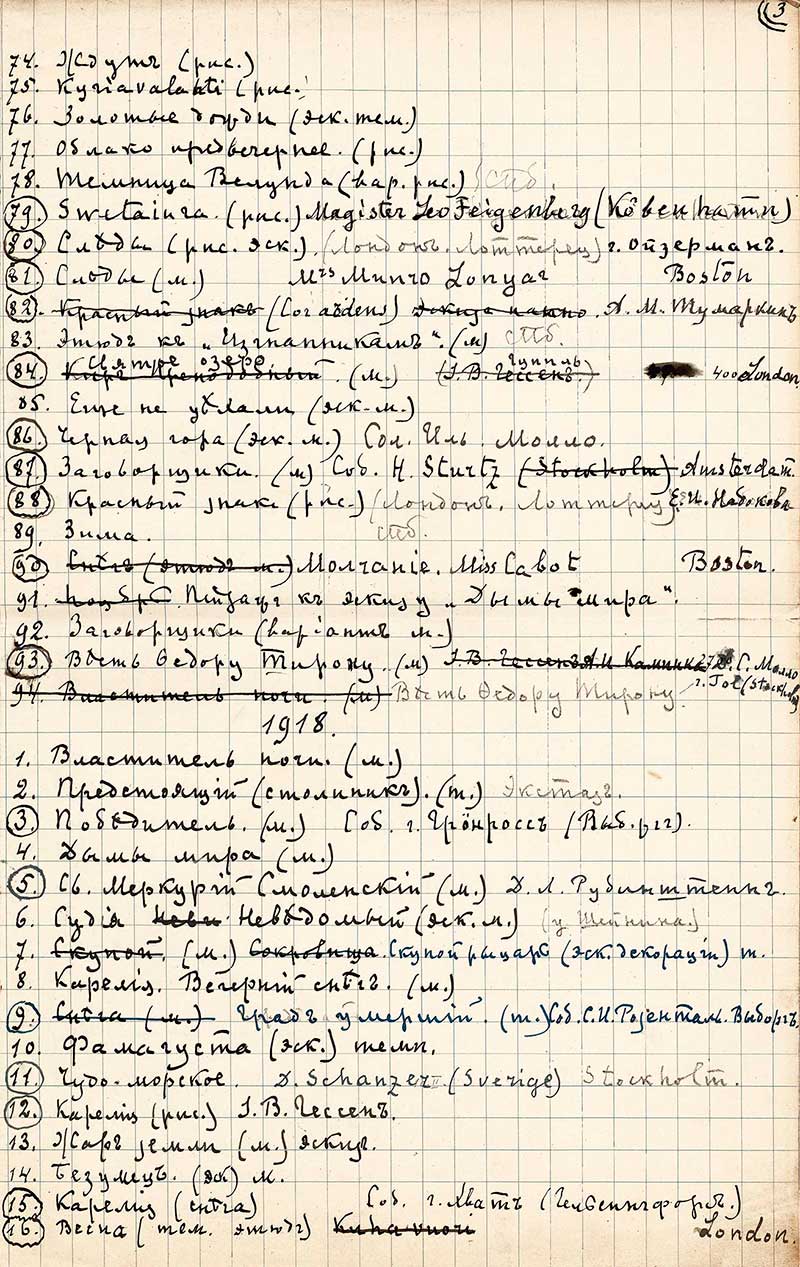 3
74. Ждутъ (рис.)
75. Kyriavalahti (рис.
76. Золотые дожди (эск. тем.)
77. Облако предвечернее. (рис.)
78. Темница Велунда (вар. рис.) Спб.
79. Swetaiura. (рис.) Magister Leo Feigenberg (Köbenhamn)
80. Слѣды (рис. эск.). (Лондонъ. Лоттерея) г. Ойзерманъ.
81. Слѣды (м.) Mrs Boston
82. Красный знакъ (Cor ardens) эскизъ панно. А. М. Тумаркинъ
83. Этюдъ къ „Изгнанникамъ“. (м) Спб.
Святое озеро Гуппль
84. (м.) (І. В. Гессенъ.) 400 London.
85. Еще не уѣхали (эск. м.)
86. Черная гора (эск. м.) Сол. Иль. Молло.
87. Заговорщики. (м) Соб. H. Sturtz (Stockholm) Amsterdam.
88. Красный знакъ (рис.) (Лондонъ. Лоттерея) Е. И. Набокова
89. Зима. Спб.
90. Снѣгъ (этюдъ м.) Молчаніе. Miss Cabot Boston.
91. Пейзажъ къ эскизу „Дымы мира“.
92. Заговорщики (варіантъ м.)
93. Вѣсть Ѳедору Тирону. (м) І. В. Гессенъ А. И. Каминка С. Молло
94. Властитель ночи. (м) Вѣсть Ѳедору Тирону. (Stockholm)
1918.
1. Властитель ночи. (м.)
2. Предстоящій (столпникъ). (т.) Экстазъ.
3. Побѣдитель. (м.) Соб. г. Грönроссъ (Выборг).
4. Дымы мира (м.)
5. Св. Меркурій Смоленскій (м.) Д. Л. Рубинштейнъ.
6. Судія Неви Невѣдомый (эск. м.) (у Шейнина.)
7. Скупой. (м.) Сокровища. Скупой рыцарь (эск. декораціи) т.
8. Карелія. Вечерній снѣгъ. (м.)
9. Снѣга (м.) Градъ умершій. (т.) Соб. С. И. Розенталь. Выборгъ.
10. Фамагуста (эск.) темп.
11. Чудо-морское. D. Schanzer (Sverige) Stockholm.
12. Карелія (рис.) І. В. Гессенъ.
13. Жаръ земли (м.) эскизъ.
14. Безумецъ. (эск) м.
15. Карелія (снѣга) Соб. г. Хватъ (Гельсингфорсъ.)
16. Весна (тем. этюдъ) London.